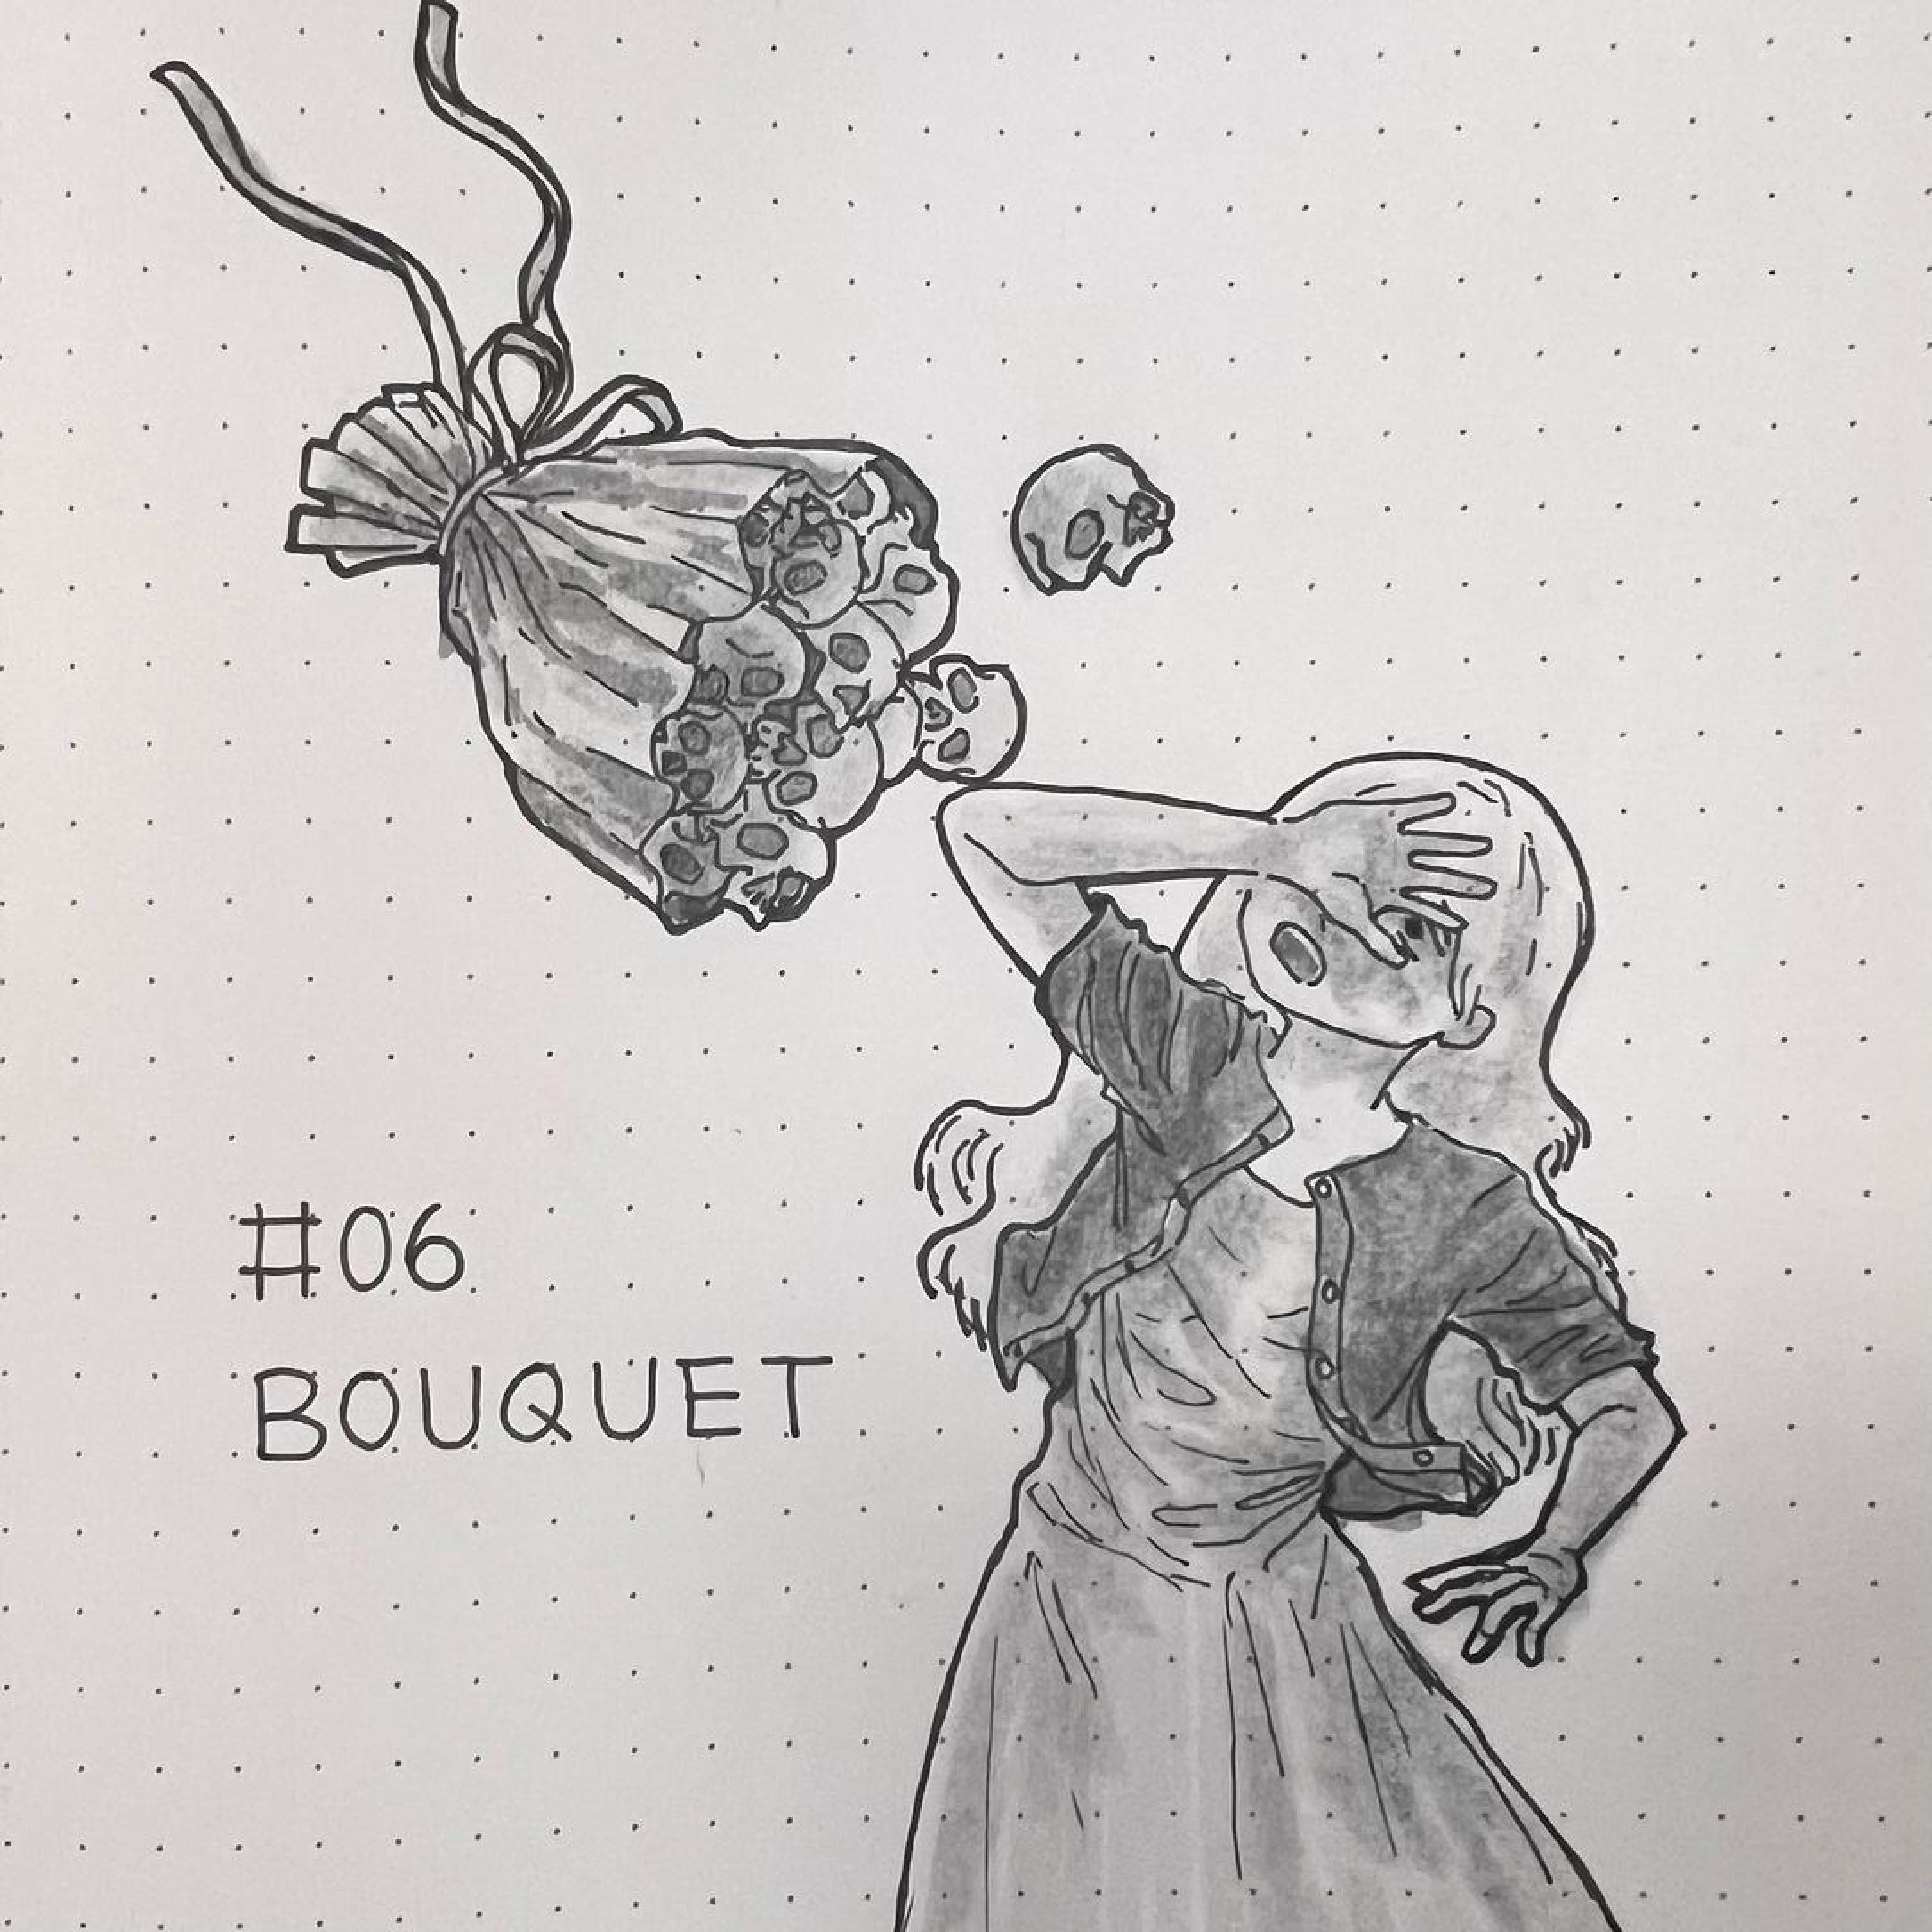 #06
BOUQUET